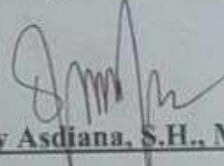 y Asdiana, S.H., M